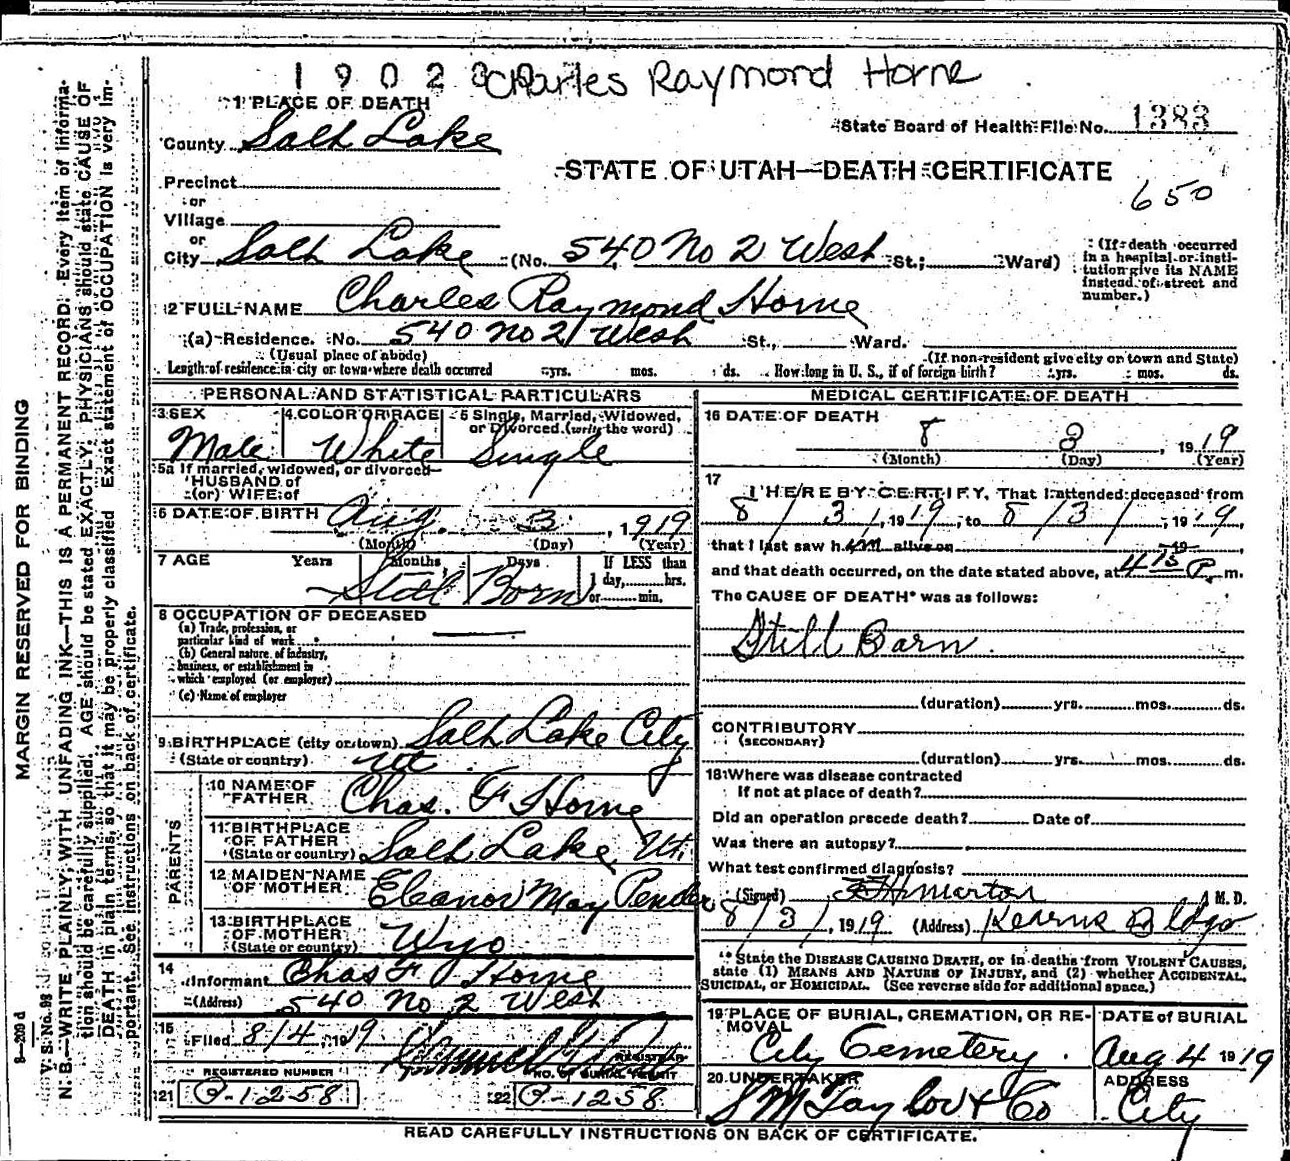 1 9 0 2 8 Charles Raymond Horne
1 PLACE OF DEATH
State Board of Health File No. 1383
County Salt Lake
STATE OF UTAH—DEATH CERTIFICATE
650
Precinct
or
Village
or
City Salt Lake (No. 540 No 2 West St.; Ward)
(If death occurred in a hospital or institution give its NAME instead of street and number.)
2 FULL NAME Charles Raymond Horne
(a) Residence. No. 540 No 2 West St., Ward.
(Usual place of abode) (If non-resident give city or town and State)
Length of residence in city or town where death occurred yrs. mos. ds. How long in U. S., if of foreign birth? yrs. mos. ds.
PERSONAL AND STATISTICAL PARTICULARS
3 SEX Male
4 COLOR OR RACE White
5 Single, Married, Widowed, or Divorced. (write the word) Single
5a If married, widowed, or divorced
HUSBAND of
(or) WIFE of
6 DATE OF BIRTH Aug. 3, 1919
(Month) (Day) (Year)
7 AGE Years Months Days If LESS than
1 day, hrs.
or min.
Still Born
8 OCCUPATION OF DECEASED
(a) Trade, profession, or
particular kind of work
(b) General nature of industry,
business, or establishment in
which employed (or employer)
(c) Name of employer
9 BIRTHPLACE (city or town) Salt Lake City
(State or country) Ut.
PARENTS
10 NAME OF FATHER Chas. F Horne
11 BIRTHPLACE OF FATHER (State or country) Salt Lake, Ut.
12 MAIDEN NAME OF MOTHER Eleanor May Pender
13 BIRTHPLACE OF MOTHER (State or country) Wyo
14
Informant Chas F Horne
(Address) 540 No 2 West
15
Filed 8/4, 1919
REGISTRAR
REGISTERED NUMBER NO. OF BURIAL PERMIT
21 O-1258 22 O-1258
MEDICAL CERTIFICATE OF DEATH
16 DATE OF DEATH
8 3, 1919
(Month) (Day) (Year)
17
I HEREBY CERTIFY, That I attended deceased from
8/3/, 1919, to 8/3/, 1919,
that I last saw him alive on 19,
and that death occurred, on the date stated above, at 4 15 P. m.
The CAUSE OF DEATH* was as follows:
Still Born.
(duration) yrs. mos. ds.
CONTRIBUTORY
(SECONDARY)
(duration) yrs. mos. ds.
18 Where was disease contracted
If not at place of death?
Did an operation precede death? Date of
Was there an autopsy?
What test confirmed diagnosis?
(Signed) Marton, M. D.
8/3/, 1919 (Address) Kearns Bldg
* State the DISEASE CAUSING DEATH, or in deaths from VIOLENT CAUSES,
state (1) MEANS AND NATURE OF INJURY, and (2) whether ACCIDENTAL,
SUICIDAL, or HOMICIDAL. (See reverse side for additional space.)
19 PLACE OF BURIAL, CREMATION, OR REMOVAL
City Cemetery.
DATE of BURIAL
Aug 4 1919
20 UNDERTAKER
S M Taylor & Co
ADDRESS
City
READ CAREFULLY INSTRUCTIONS ON BACK OF CERTIFICATE.
MARGIN RESERVED FOR BINDING
V. S. No. 98
S—209 d
N. B.—WRITE PLAINLY, WITH UNFADING INK—THIS IS A PERMANENT RECORD. Every item of information should be carefully supplied. AGE should be stated EXACTLY. PHYSICIANS should state CAUSE OF DEATH in plain terms, so that it may be properly classified. Exact statement of OCCUPATION is very important. See instructions on back of certificate.